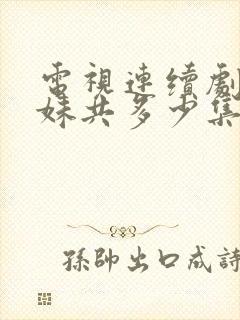 電視連續劇
妹共多少集
孫帥出口成詩